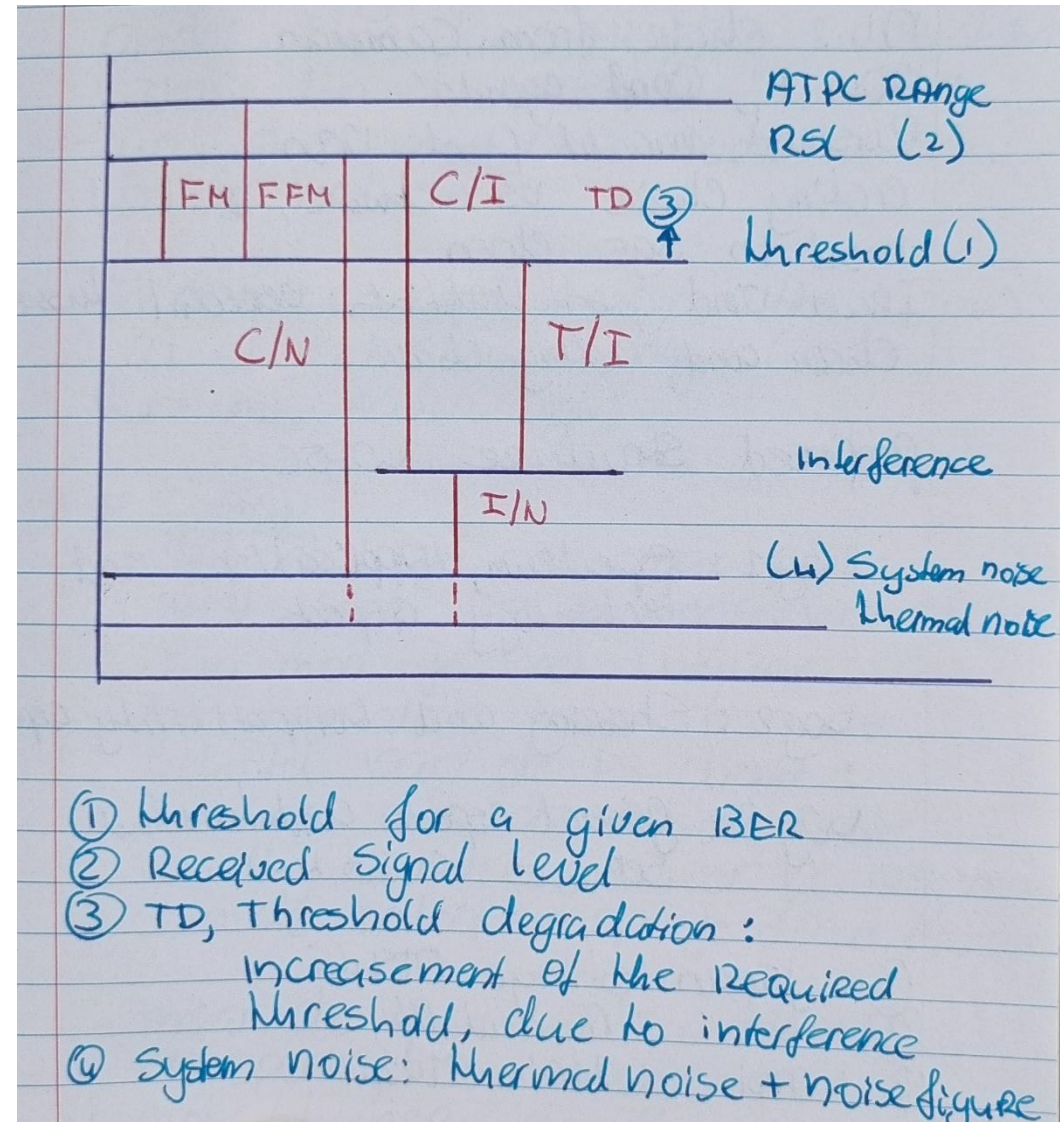 ATPC Range
RSL (2)
FM FFM C/I TD (3)
threshold (1)
C/N T/I
interference
I/N
(4) System noise
thermal noise
(1) threshold for a given BER
(2) Received Signal Level
(3) TD, Threshold degradation :
increasement of the Required
threshold, due to interference
(4) System noise: thermal noise + noise figure